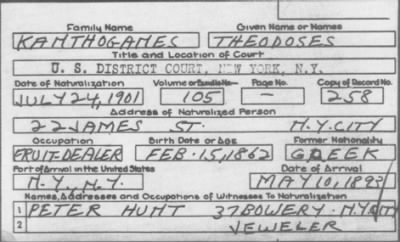 Family Name Given Name or Names
KANTHOGAMES THEODOSES
Title and Location of Court
U. S. DISTRICT COURT, NEW YORK, N.Y.
Date of Naturalization Volume or Bundle No. Page No. Copy of Record No.
JULY 24, 1901 105 258
Address of Naturalized Person
22 JAMES ST. N.Y. CITY
Occupation Birth Date or Age Former Nationality
FRUIT DEALER FEB. 15, 1862 GREEK
Port of Arrival in the United States Date of Arrival
N.Y., N.Y. MAY 10, 1893
Names, Addresses and Occupations of Witnesses To Naturalization
1 PETER HUNT 37 BOWERY. N.Y. CITY
2 JEWELER